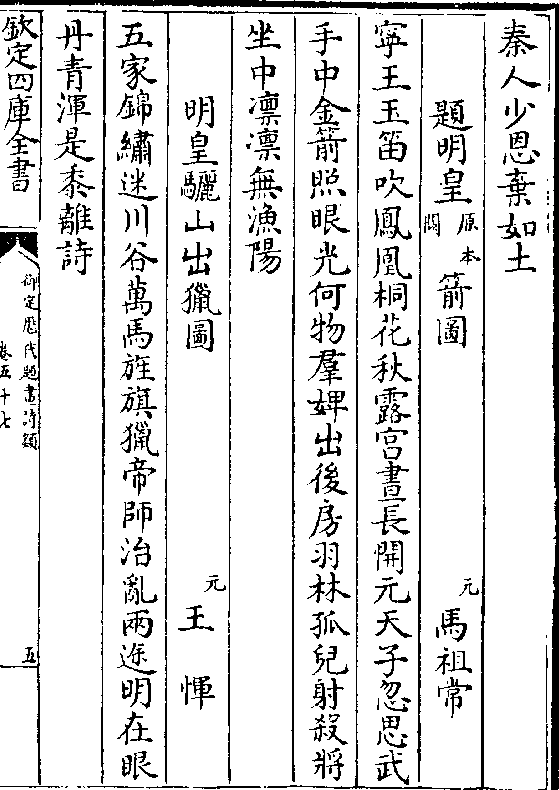 秦人少恩棄如土
題明皇原本闕箭圖 元 馬祖常
寧王玉笛吹鳳凰桐花秋露宫晝長開元天子忽思武
手中金箭照眼光何物羣婢出後房羽林孤兒射殺將
坐中凛凛無漁陽
明皇驪山出獵圖 元 王惲
五家錦繡迷川谷萬馬旌旗獵帝師治亂兩途明在眼
丹青渾是黍離詩
欽定四庫全書
御定歷代題畫詩類
卷五十七
五